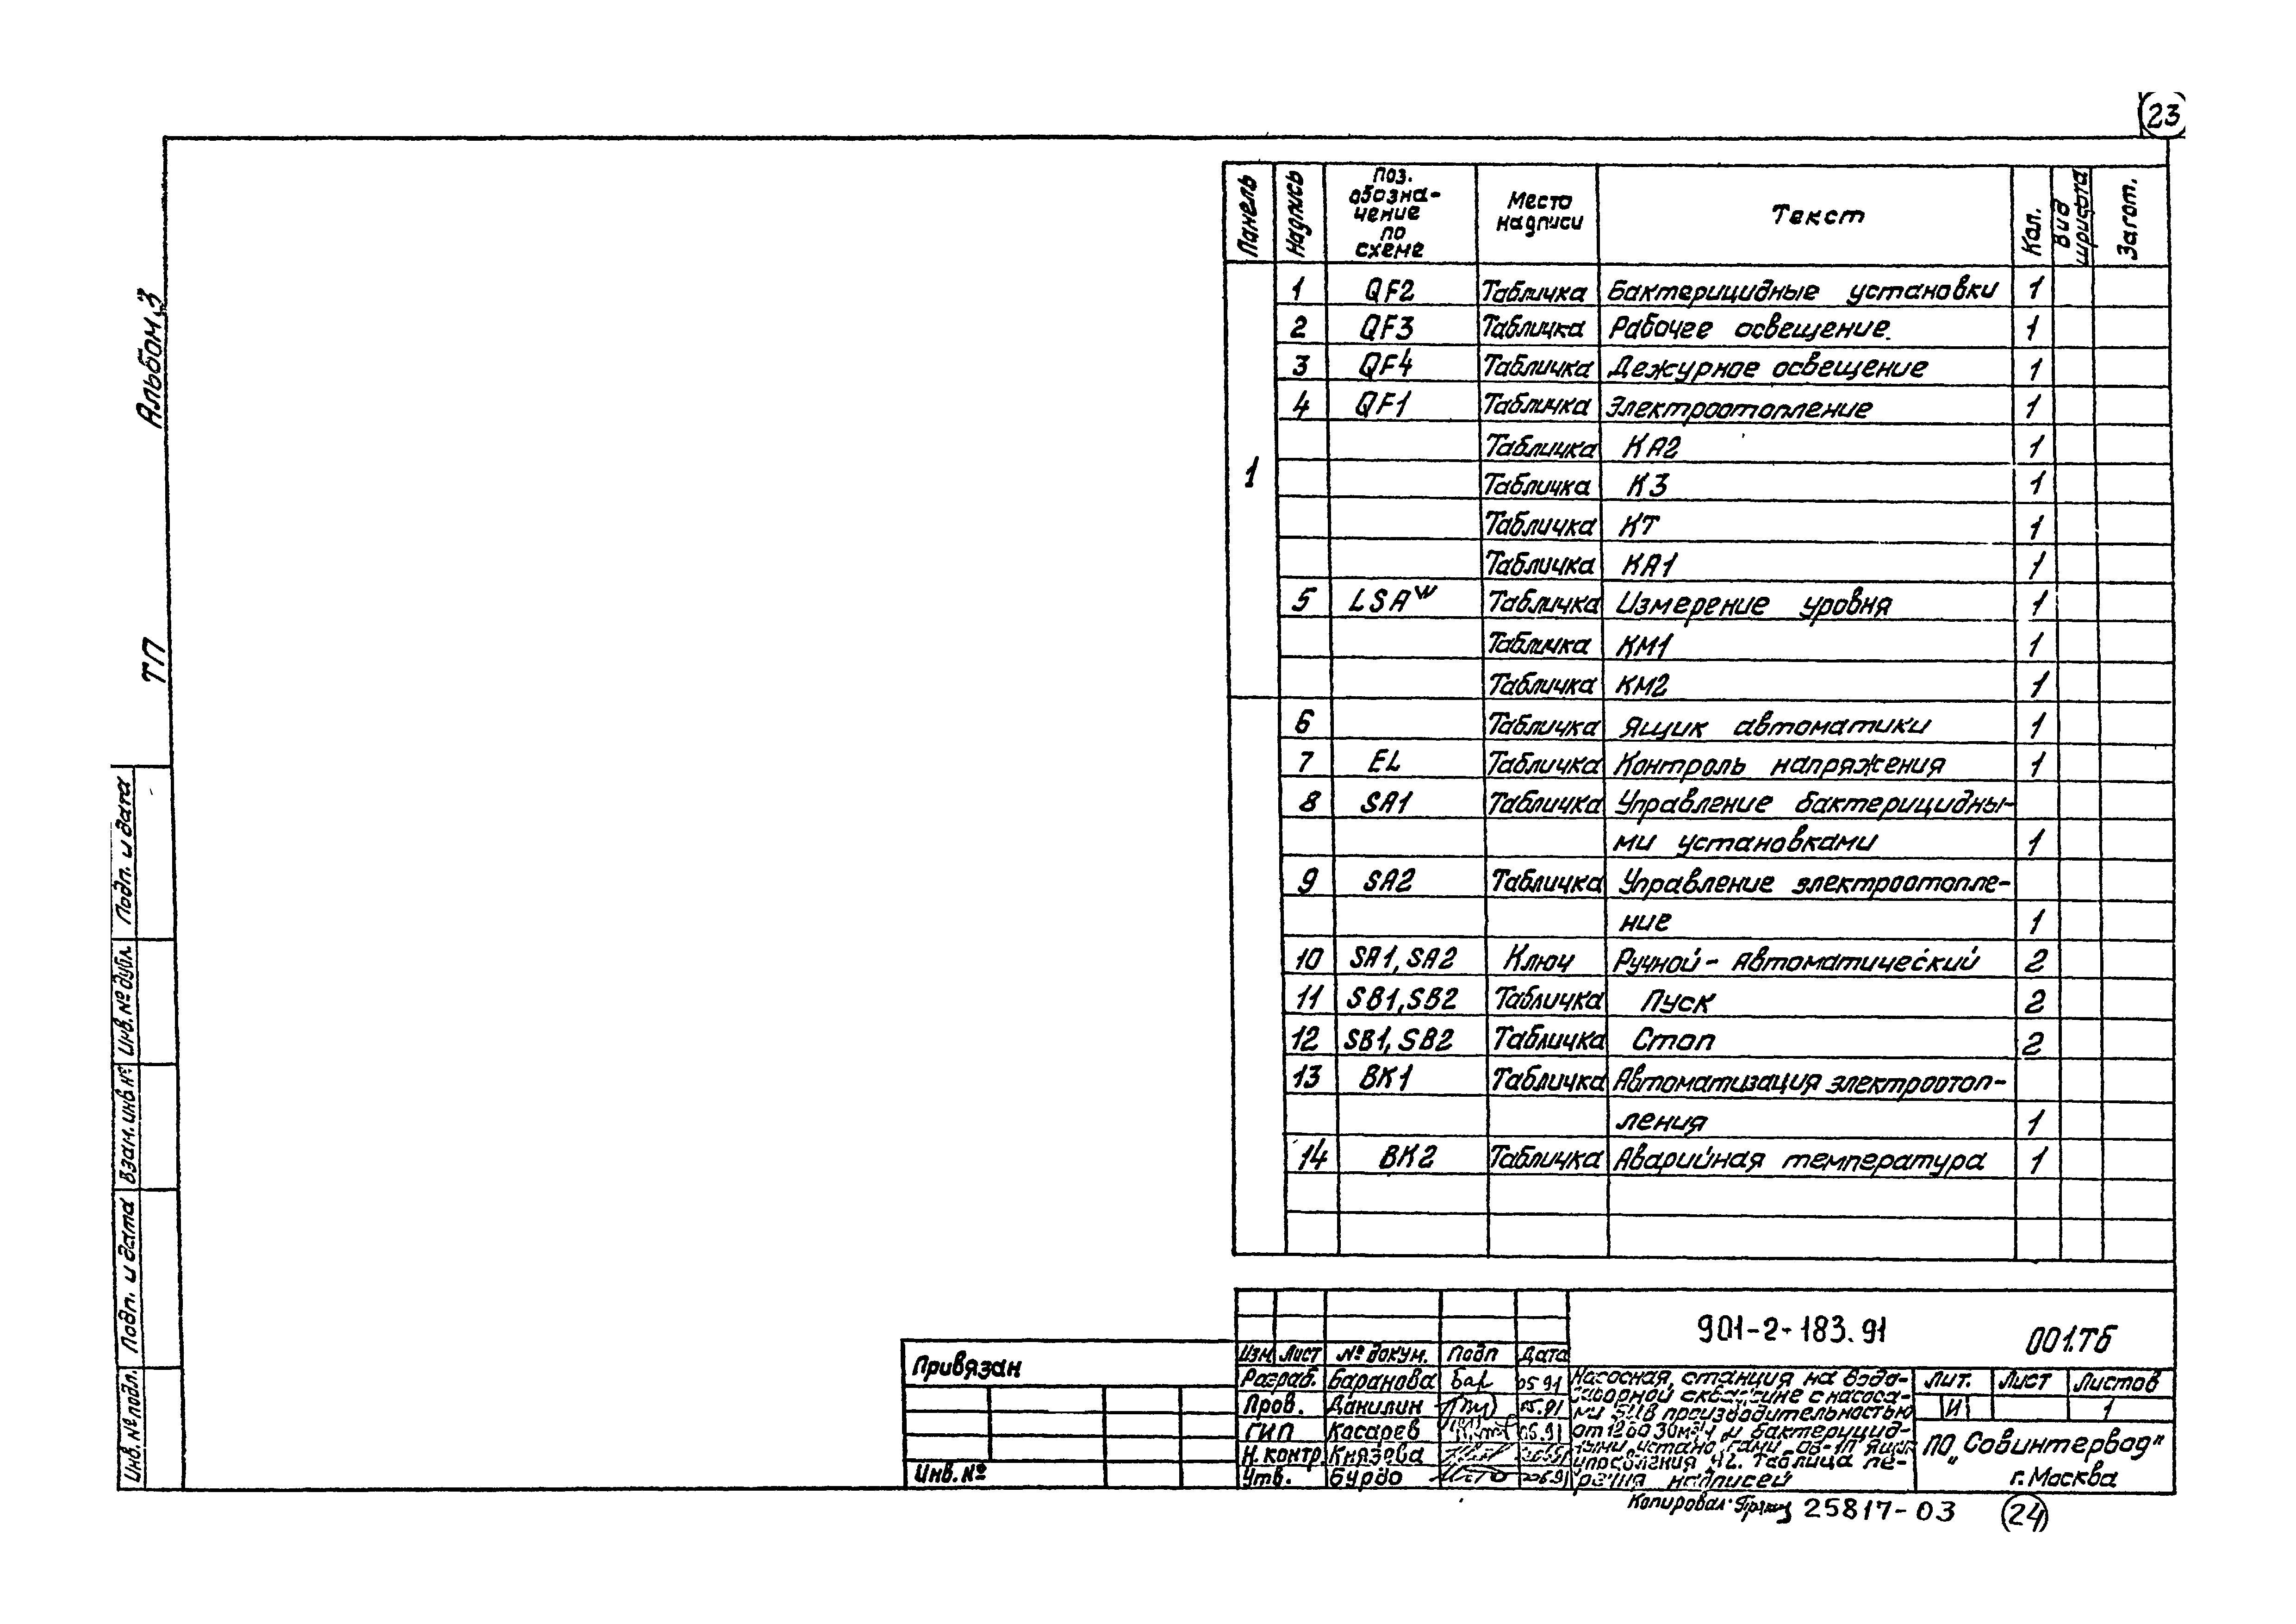 23
Альбом 3
ТП
Панель Надпись Поз. обозна-чение по схеме Место надписи Текст Кол. Вид шрифта Загот.
1
1 QF2 Табличка Бактерицидные установки 1
2 QF3 Табличка Рабочее освещение. 1
3 QF4 Табличка Дежурное освещение 1
4 QF1 Табличка Электроотопление 1
Табличка КА2 1
Табличка К3 1
Табличка КТ 1
Табличка КА1 1
5 LSAW Табличка Измерение уровня 1
Табличка КМ1 1
Табличка КМ2 1
6 Табличка Ящик автоматики 1
7 EL Табличка Контроль напряжения 1
8 SA1 Табличка Управление бактерицидны-
ми установками 1
9 SA2 Табличка Управление электроотопле-
ние 1
10 SA1, SA2 Ключ Ручной - Автоматический 2
11 SB1, SB2 Табличка Пуск 2
12 SB1, SB2 Табличка Стоп 2
13 ВК1 Табличка Автоматизация электроотоп-
ления 1
14 ВК2 Табличка Аварийная температура 1
Подп. и дата
Инв. № дубл.
Взам. инв №
Подп. и дата
Инв. № подл.
Привязан
Инв. №
901-2-183.91 001.ТБ
Изм Лист № докум. Подп Дата
Разраб. Баранова Бар 05.91
Пров. Данилин 05.91
ГИП Косарев 05.91
Н. контр. Князева
Утв. Бурдо
Насосная станция на водо-
заборной скважине с насоса-
ми ЭЦВ производительностью
от 12 до 30 м3/ч и бактерицид-
ными установками ОВ-1П Ящик
управления Я2. Таблица пе-
речня надписей
Лит. Лист Листов
И 1
ПО „Совинтервод"
г. Москва
Копировал: 25817-03 24